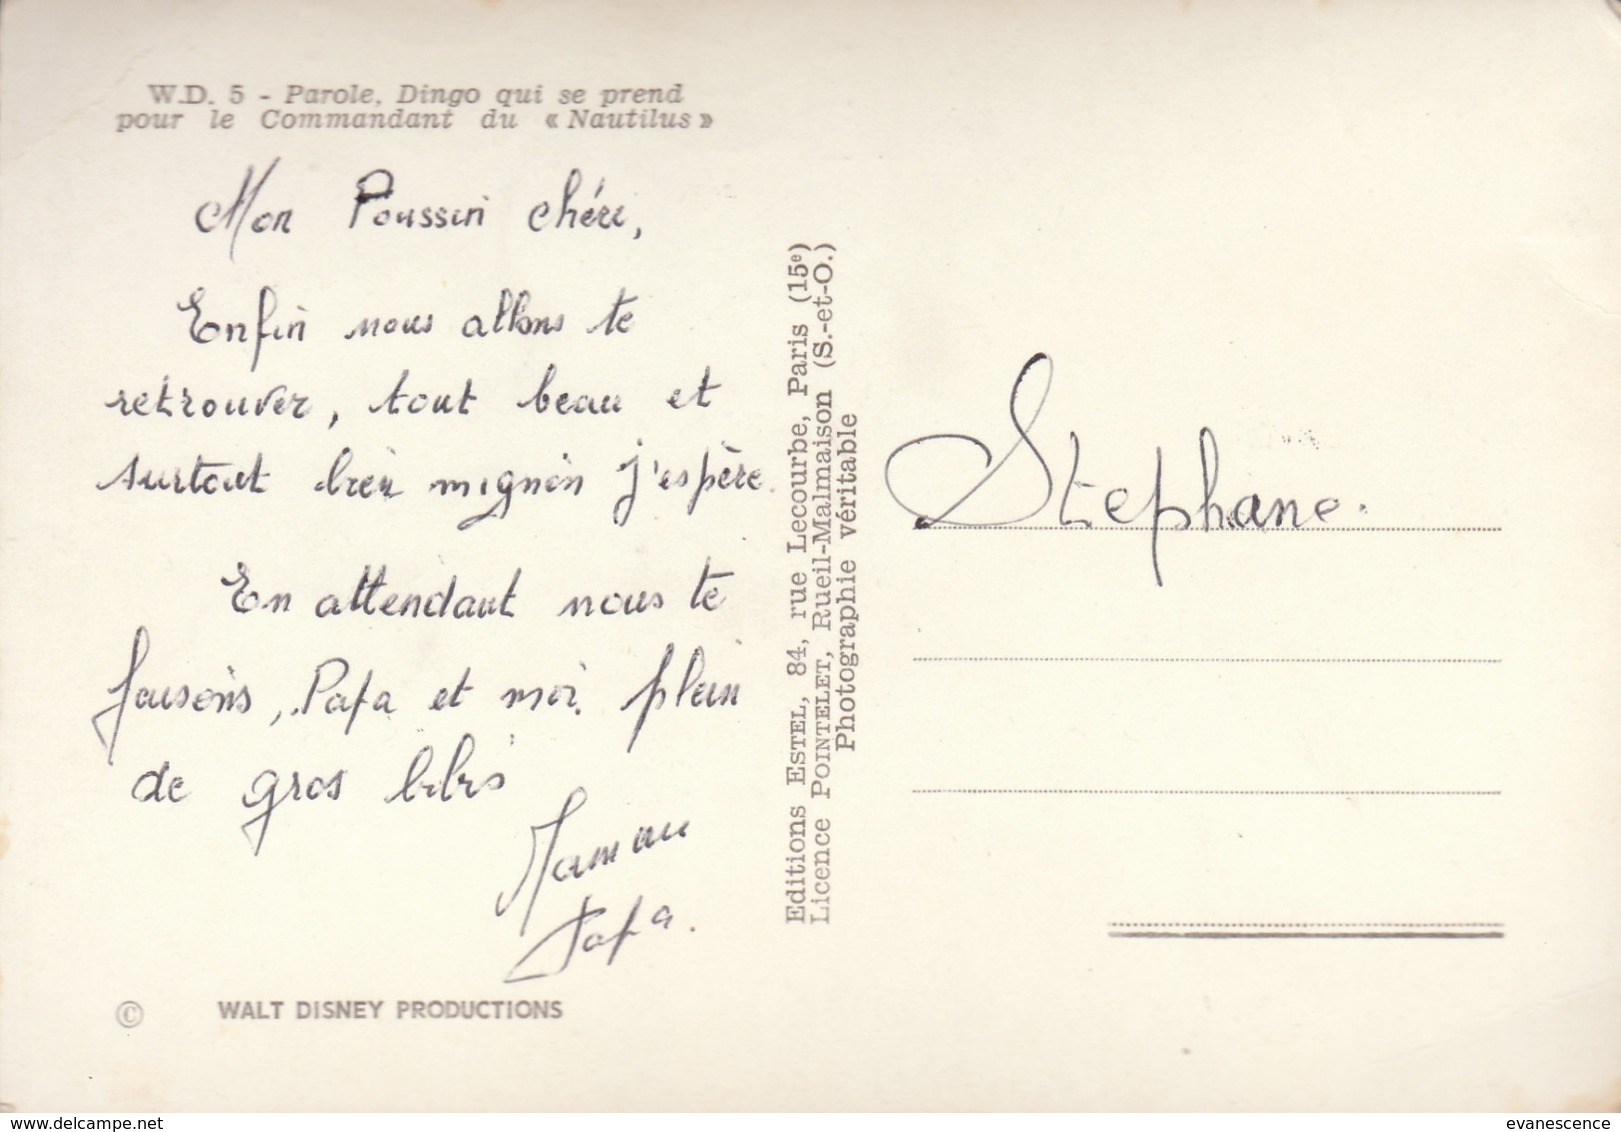 W.D. 5 - Parole, Dingo qui se prend
pour le Commandant du « Nautilus »
Mon Poussin chéri,
Enfin nous allons te
retrouver, tout beau et
surtout bien mignon j'espère.
En attendant nous te
faisons, Papa et moi, plein
de gros bibis
Maman
Papa.
© WALT DISNEY PRODUCTIONS
Editions ESTEL, 84, rue Lecourbe, Paris (15e)
Licence POINTELET, Rueil-Malmaison (S.-et-O.)
Photographie véritable
Stephane.
evanescence